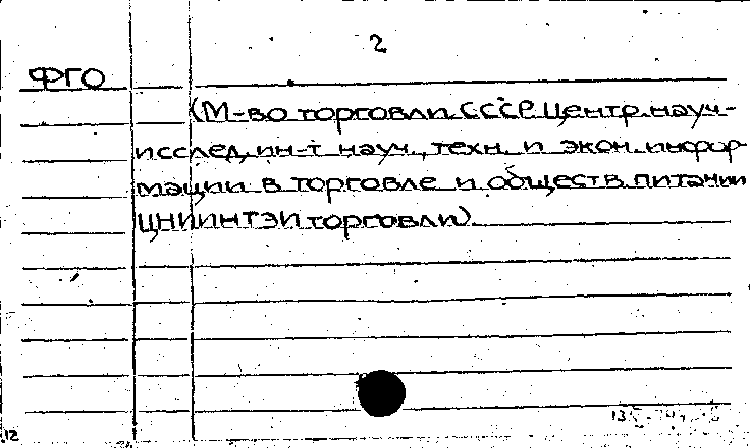 2
ФГО
(М-во торговли СССР. Центр. науч.-
исслед. ин-т науч., техн. и экон. инфор-
мации в торговле и обществ. питании
ЦНИИНТЭИ торговли).
12